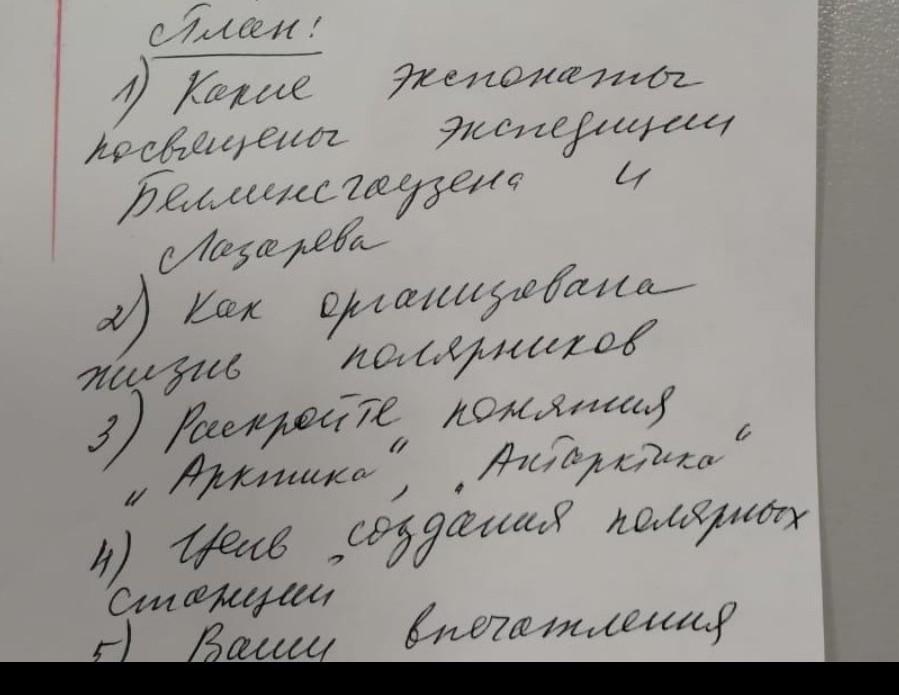 План:
1) Какие экспонаты
посвящены экспедиции
Беллинсгаузена и
Лазарева
2) Как организована
жизнь полярников
3) Раскройте понятия
„Арктика“, „Антарктика“
4) Цель создания полярных
станции
5) Ваши впечатления